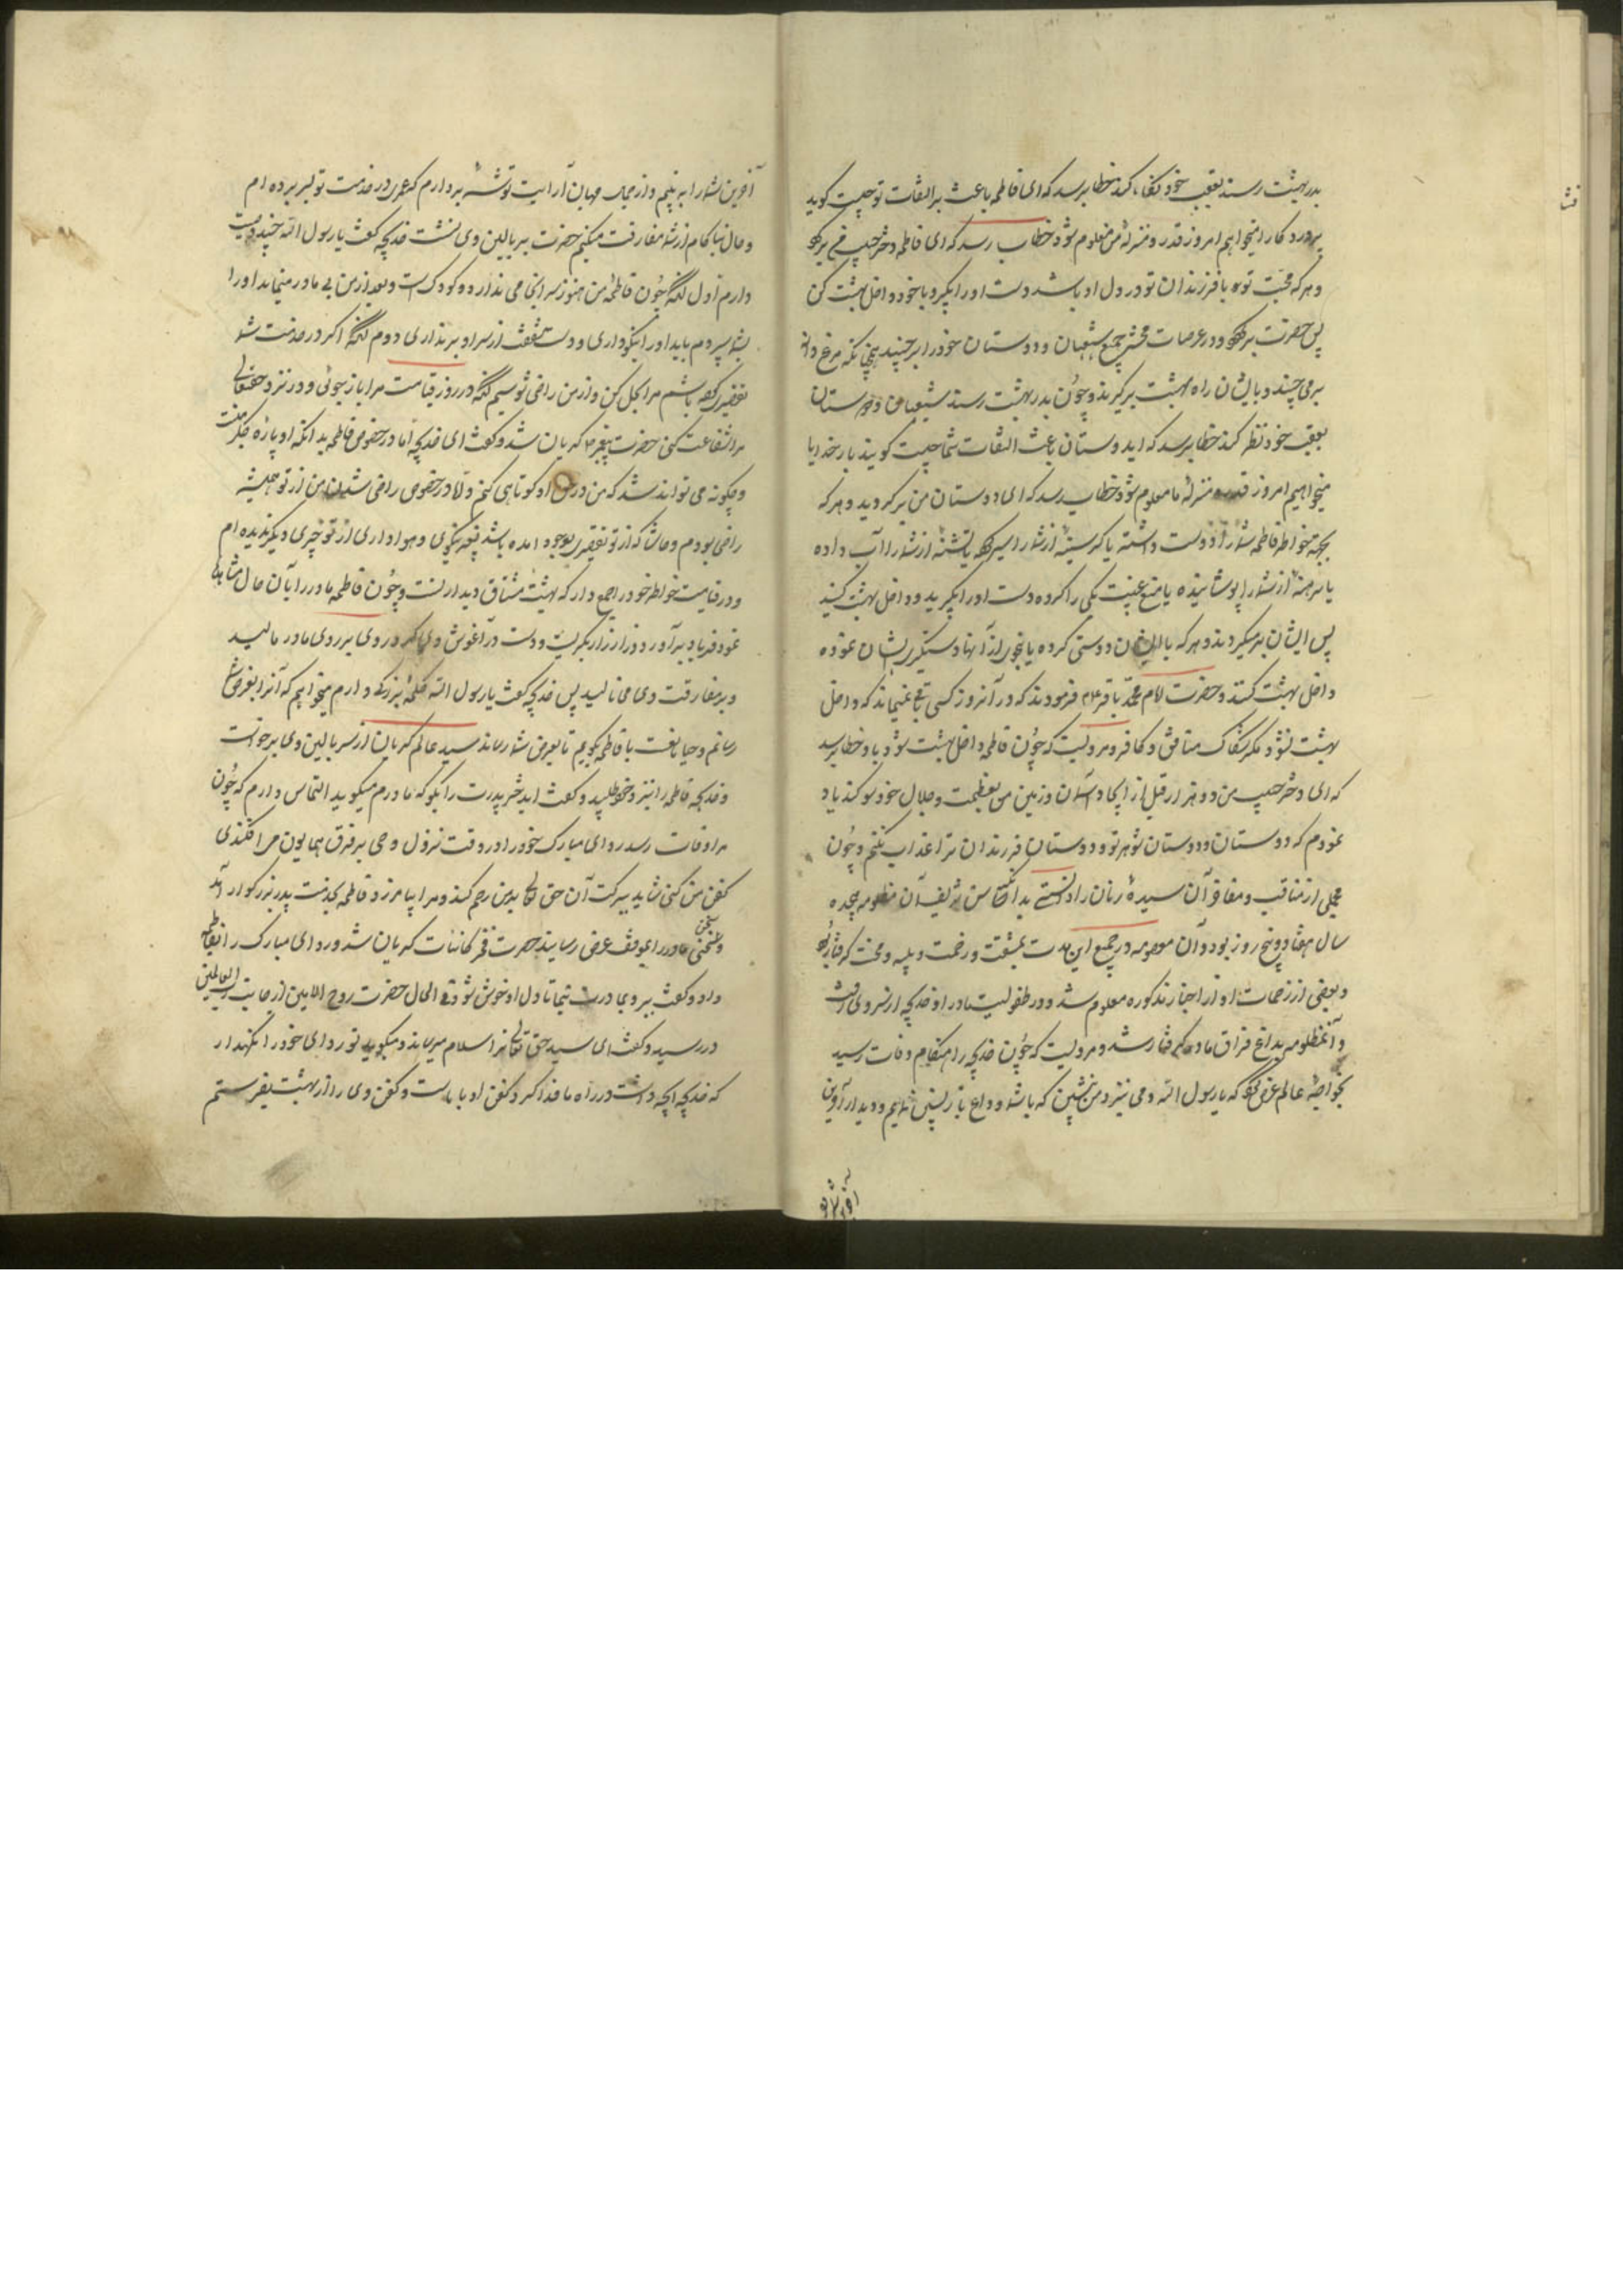 بدر بهشت رسند بعقب خود نگاه کند خطاب رسد که ای فاطمه باعث بر التفات تو چیست گوید
پروردگارا میخواهم امروز قدر و منزلهٔ من معلوم شود خطاب رسد که ای فاطمه دختر حبیب من برگرد
و هر که محبت تو یا فرزندان تو در دل او باشد دست او را بگیر و با خود داخل بهشت کن
پس حضرت برگردد و در عرصات محشر جمیع شیعیان و دوستان خود را برچیند همچنانکه مرغ دانه
برمی چیند و بایشان راه بهشت برگیرند و چون بدر بهشت رسند شیعیان و دوستان
بعقب خود نظر کنند خطاب رسد که ای دوستان باعث التفات شما چیست گویند بار خدایا
میخواهیم امروز قدر و منزلهٔ ما معلوم شود خطاب رسد که ای دوستان من برگردید و هر که
بجهة خاطر فاطمه شما را دوست داشته یا گرسنهٔ از شما را سیر کرده یا تشنهٔ از شما را آب داده
یا برهنهٔ از شما را پوشانیده یا منع غیبت یکی را کرده دست او را بگیرید و داخل بهشت کنید
پس ایشان برمیگردند و هر که با ایشان دوستی کرده یا بنحوی از آنها دستگیری ایشان نموده
داخل بهشت کنند و حضرت امام محمد باقر ع م فرمودند که در آنروز کسی باقی نمیماند که داخل
بهشت نشود مگر شکاک منافق و کافر و مرویست که چون فاطمه داخل بهشت شود باو خطاب رسد
که ای دختر حبیب من دو هزار قبل از ایجاد آسمان و زمین من بعظمت و جلال خود سوگند یاد
نمودم که دوستان و دوستان شوهر تو و دوستان فرزندان ترا عذاب نکنم و چون
مجملی از مناقب و مفاخر آن سیدهٔ زنان را دانستی بدانکه سن شریف آن مظلومه هجده
سال هفتاد و پنج روز بود و آن معصومه در جمیع این مدت بمشقت و زحمت و بلیه و محنت گرفتار بود
و بعضی از زحمات او از اخبار مذکوره معلوم شد و در طفولیت مادر او خدیجه از سر وی رفت
و آنمظلومه بداغ فراق مادر گرفتار شد و مرویست که چون خدیجه را هنگام وفات رسید
بخواجهٔ عالم عرض کرد که یا رسول الله دمی نزد من بنشین که با شما وداع بازپسین نمایم و دیدار آخرین
آخرین شما را به بینم و از جمال جهان آرایت توشهٔ بردارم که عمری در خدمت تو بسر برده ام
و حال ناکام از شما مفارقت میکنم حضرت ببر بالین وی نشست خدیجه گفت یا رسول الله چند وصیت
دارم اول آنکه چون فاطمهٔ من هنوز سرانجامی ندارد و کودک است و بعد از من بی مادر میماند او را
بشما سپردم باید او را نیکو داری و دست شفقت از سر او برنداری دوم آنکه اگر در خدمت شما
تقصیری کرده باشم مرا بحل کن و از من راضی شو سیم آنکه در روز قیامت مرا باز جوئی و در نزد حقتعالی
مرا شفاعت کنی حضرت پیغمبر ص گریان شد و گفت ای خدیجه اما در خصوص فاطمه بدانکه او پارهٔ جگر منست
و چگونه می تواند شد که من در حق او کوتاهی کنم و اما در خصوص راضی شدن من از تو همیشه
راضی بودم و حاشا که از تو تقصیری بوجود آمده باشد بغیر نیکوئی و هواداری از تو چیزی دیگر ندیده ام
و در قیامت خاطر خود را جمع دار که بهشت مشتاق دیدار تست و چون فاطمه مادر را بآن حال مشاهده
نمود فریاد برآورد و زار زار بگریست و دست در آغوش وی کرد و روی بر روی مادر مالید
و بر مفارقت وی می نالید پس خدیجه گفت یا رسول الله کلمهٔ بزرگی دارم میخواهم که آنرا بعرض شما
رسانم و حیا مانعست با فاطمه بگویم تا بعرض شما رساند سید عالم گریان از سر بالین وی برخواست
و خدیجه فاطمه را نزد خود طلبید و گفت ای دختر پدرت را بگو که مادرم میگوید التماس دارم که چون
مرا وفات رسد ردای مبارک خود را در وقت نزول وحی بر فرق همایون می افکندی
کفن من کنی شاید ببرکت آن حق تعالی بمن رحم کند و مرا بیامرزد فاطمه بخدمت پدر بزرگوار آمد
و سخن مادر را بموقف عرض رسانید حضرت فخر کاینات گریان شد و ردای مبارک را بفاطمه
داد و گفت ببر و بمادرت بنما تا دل او خوش شود فی الحال حضرت روح الامین از جانب رب العالمین
در رسید و گفت ای سید حق تعالی ترا سلام میرساند و میگوید تو ردای خود را نگهدار
که خدیجه آنچه داشت در راه ما فدا کرد کفن او با ماست و کفن وی را از بهشت بفرستم